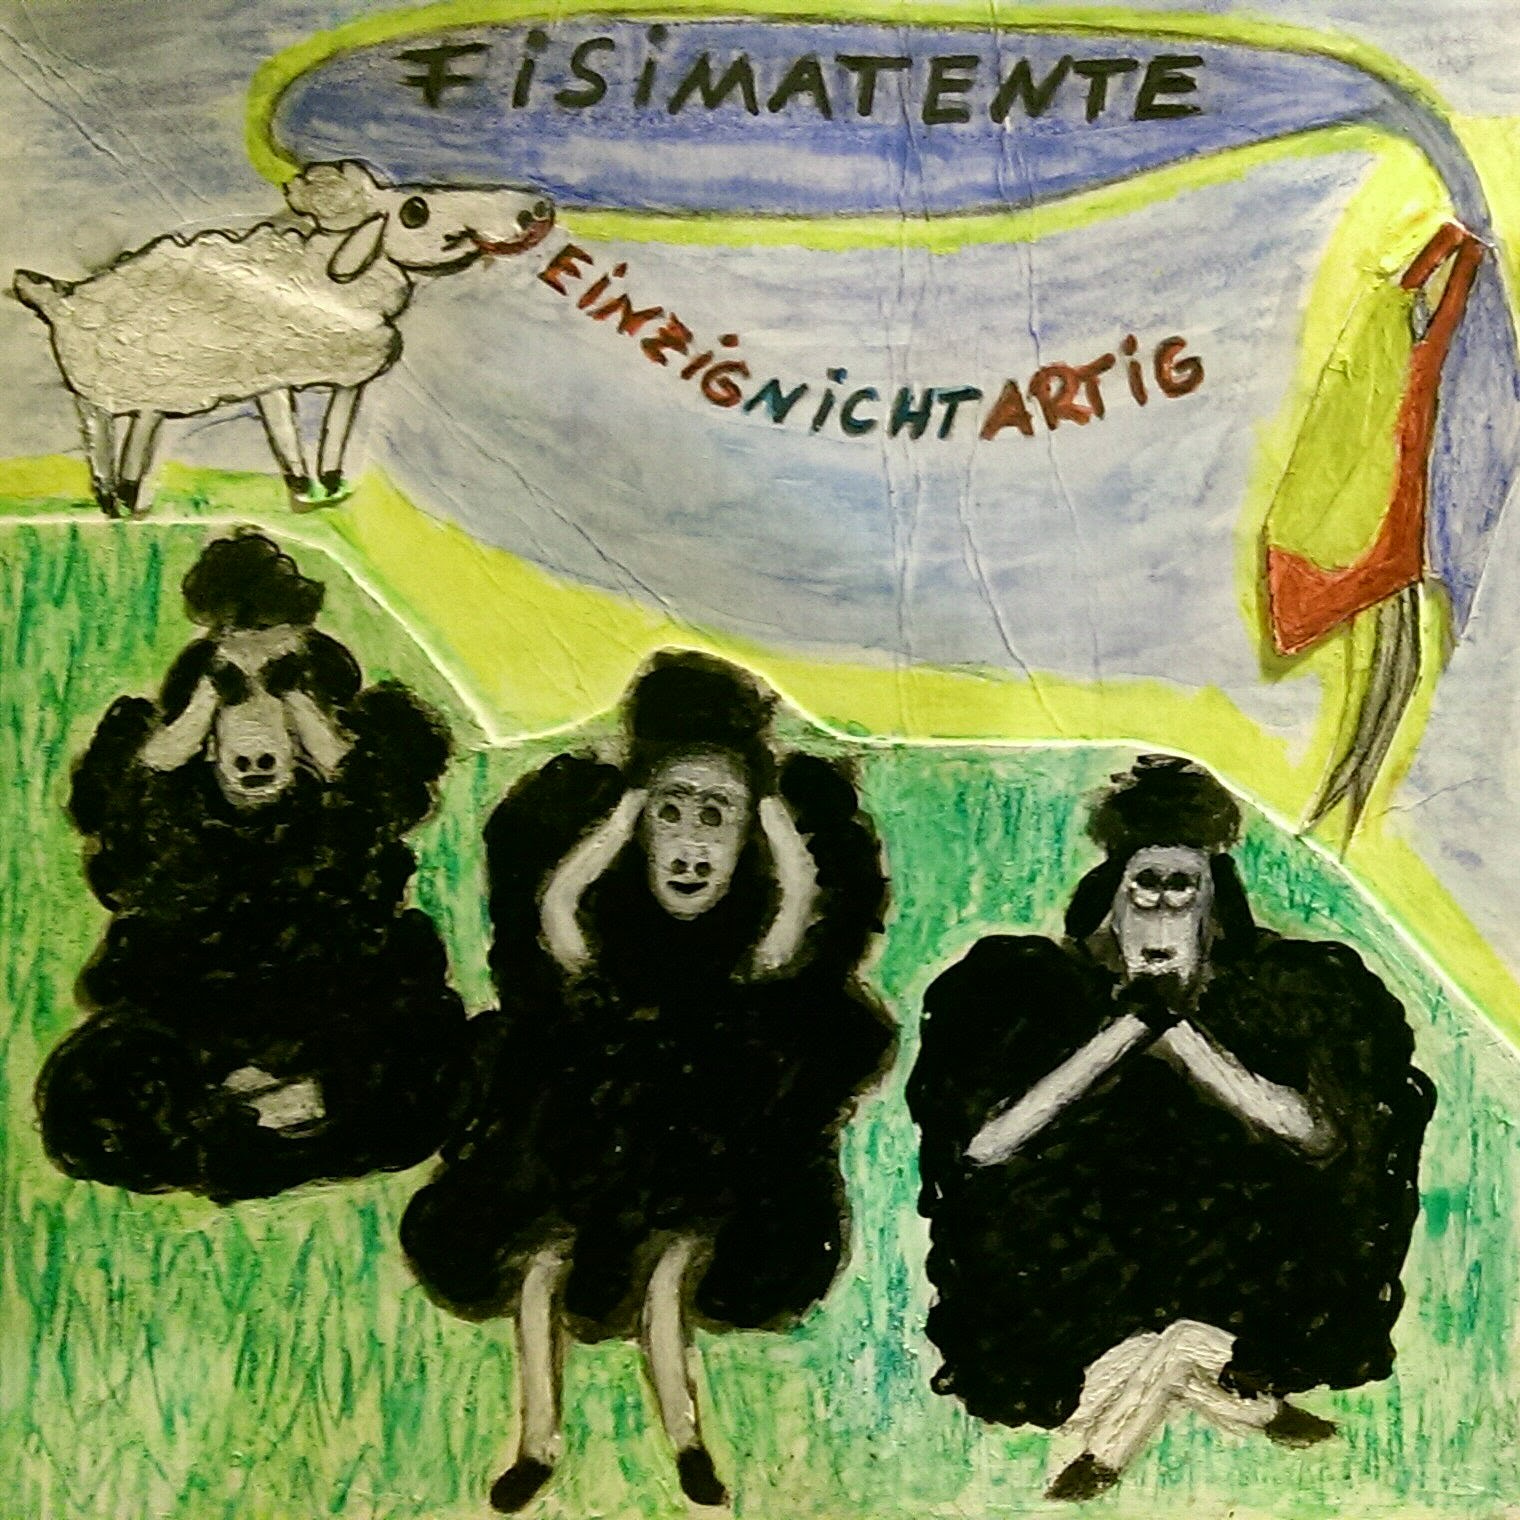 FiSiMATENTE
EiNZiGNiCHTARTiG